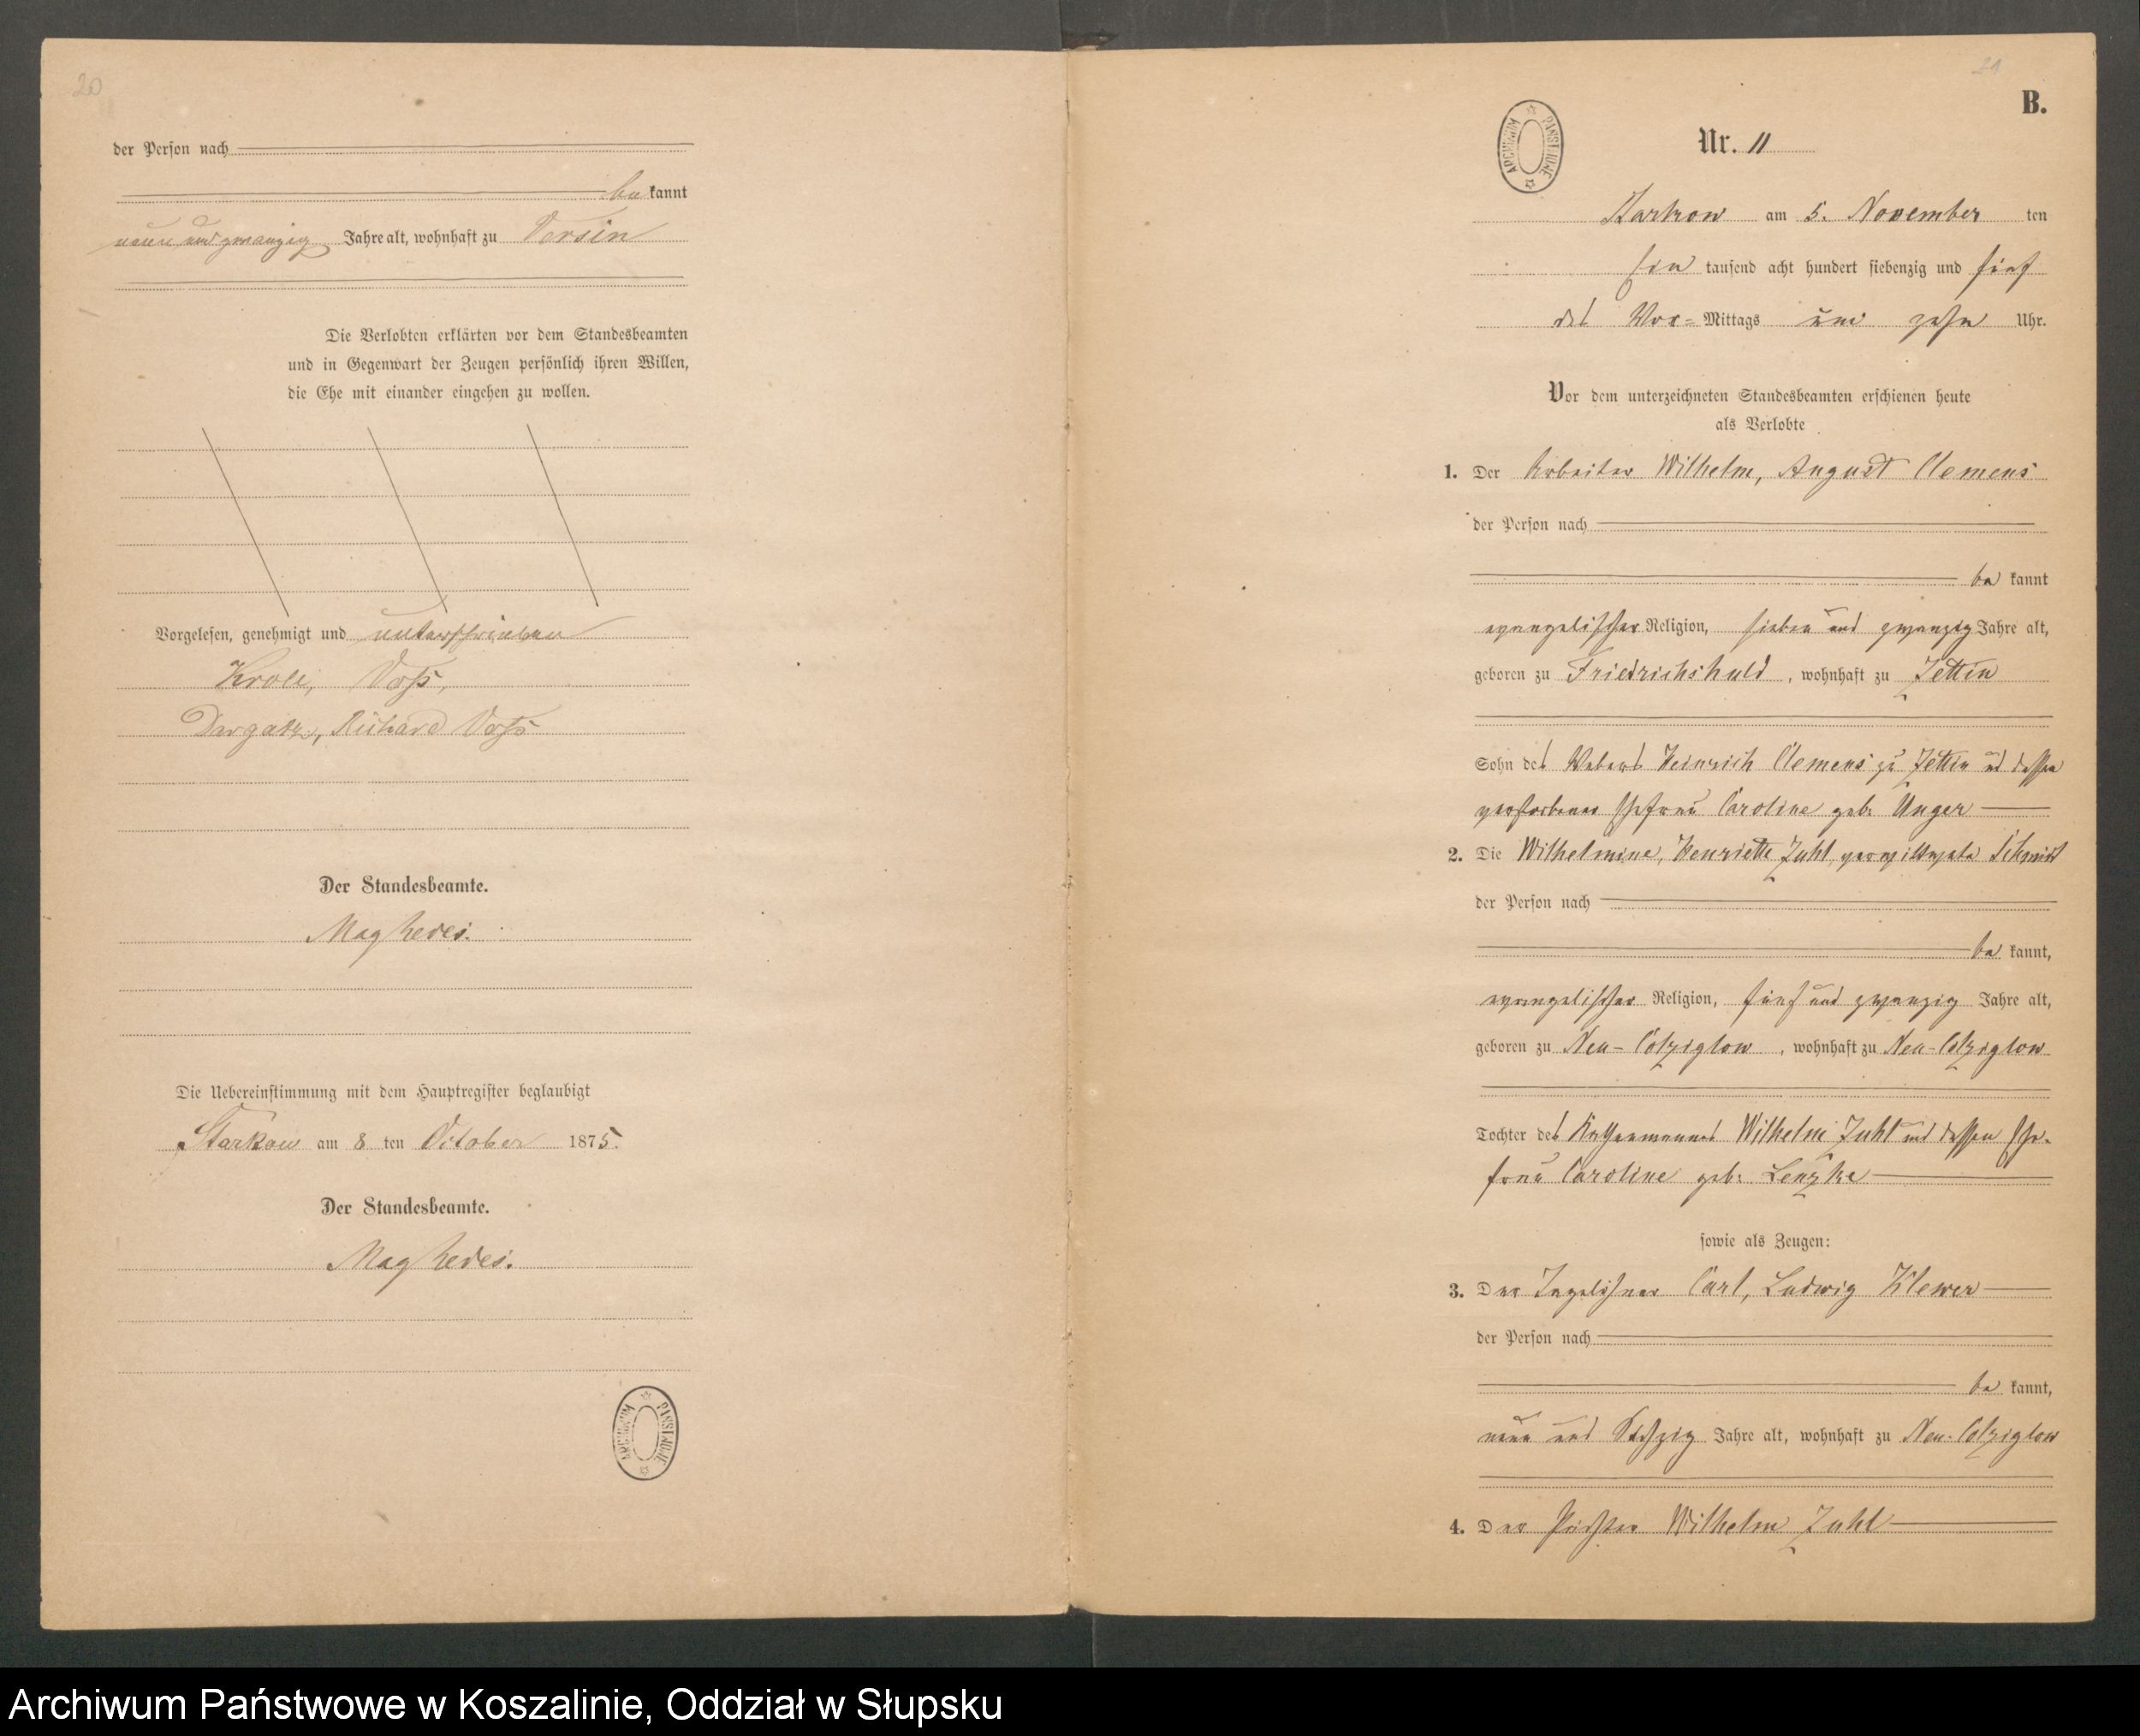 20
der Person nach
be kannt
neun und zwanzig Jahre alt, wohnhaft zu Versin
Die Verlobten erklärten vor dem Standesbeamten
und in Gegenwart der Zeugen persönlich ihren Willen,
die Ehe mit einander eingehen zu wollen.
Vorgelesen, genehmigt und unterschrieben
Kroll, Voß,
Dargatz, Richard Voß
Der Standesbeamte.
Die Uebereinstimmung mit dem Hauptregister beglaubigt
Starkow am 8 ten October 1875.
Der Standesbeamte.
ARCHIWUM PAŃSTWOWE
21
B.
ARCHIWUM PAŃSTWOWE
Nr. 11
am 5. November ten
Ein tausend acht hundert siebenzig und fünf
des Vor= Mittags um zehn Uhr.
Vor dem unterzeichneten Standesbeamten erschienen heute
als Verlobte
1. Der Arbeiter Wilhelm, August Clemens
der Person nach
be kannt
evangelischer Religion, sieben und zwanzig Jahre alt,
geboren zu Friedrichshuld, wohnhaft zu Zettin
Sohn des Webers Heinrich Clemens zu Zettin und dessen
verstorbener Ehefrau Caroline geb: Unger
2. Die Wilhelmine, Henriette Zuhl, verwittwete Schmidt
der Person nach
be kannt,
evangelischer Religion, fünf und zwanzig Jahre alt,
geboren zu Neu-Colziglow, wohnhaft zu Neu-Colziglow
Tochter des Kathenmannes Wilhelm Zuhl und dessen Ehe-
frau Caroline geb: Lenzke
sowie als Zeugen:
3. Der Tagelöhner Carl, Ludwig Klewer
der Person nach
be kannt,
neun und Sechzig Jahre alt, wohnhaft zu Neu-Colziglow
4. Der Wilhelm Zuhl
Archiwum Państwowe w Koszalinie, Oddział w Słupsku